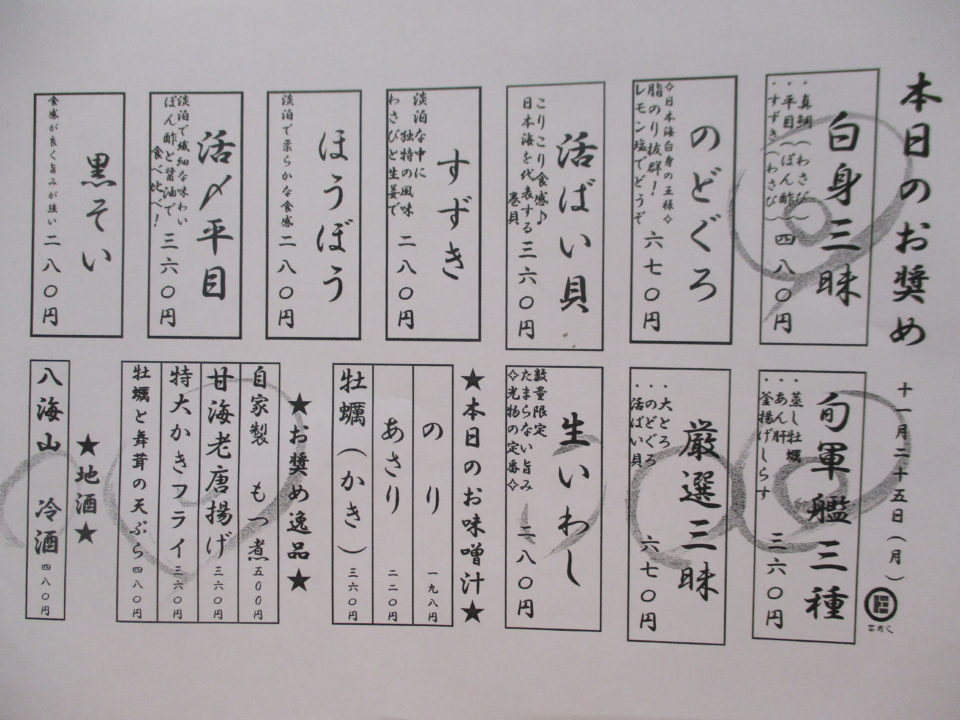 本日のお奨め
十一月二十五日（月）
白身三昧
・真鯛（わさび）
・平目（ぽん酢）
・すずき（わさび）
四八〇円
のどぐろ
✧日本海白身の王様✧
脂のり抜群！
レモン塩でどうぞ
六七〇円
活ばい貝
こりこり食感♪
日本海を代表する
巻貝
三六〇円
すずき
淡泊な中に
独特の風味
わさびと生姜で
二八〇円
ほうぼう
淡泊で柔らかな食感
二八〇円
活〆平目
淡泊で繊細な味わい
ぽん酢と醤油で
食べ比べ！
三六〇円
黒そい
食感が良く旨みが強い
二八〇円
旬軍艦三種
・蒸し牡蠣
・あん肝
・釜揚げしらす
三六〇円
厳選三昧
・大とろ
・のどぐろ
・活ばい貝
六七〇円
生いわし
数量限定
たまらない旨み
✧光物の定番✧
二八〇円
★本日のお味噌汁★
のり 一九八円
あさり 二二〇円
牡蠣（かき） 三六〇円
★お奨め逸品★
自家製 もつ煮 五〇〇円
甘海老唐揚げ 三六〇円
特大かきフライ 三六〇円
牡蠣と舞茸の天ぷら 四八〇円
★地酒★
八海山 冷酒 四八〇円